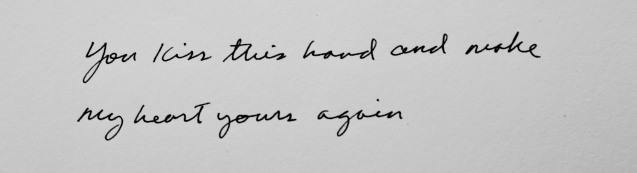 You kiss this hand and make
my heart yours again